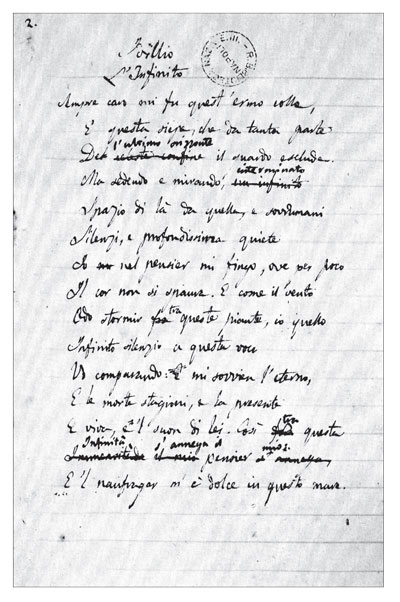 2.
Idillio
L'Infinito
Sempre caro mi fu quest'ermo colle,
E questa siepe, che da tanta parte
l'ultimo orizzonte
Del celeste confine il guardo esclude.
interminato
Ma sedendo e mirando, un infinito
Spazio di là da quella, e sovrumani
Silenzi, e profondissima quiete
Io nel pensier mi fingo, ove per poco
Il cor non si spaura. E come il vento
tra
Odo stormir fra queste piante, io quello
Infinito silenzio a questa voce
Vo comparando: E mi sovvien l'eterno,
E le morte stagioni, e la presente
E viva, e 'l suon di lei. Così
tra
fra questa
Infinità s'annega il mio
Immensitade il mio pensier s'annega,
E 'l naufragar m'è dolce in questo mare.